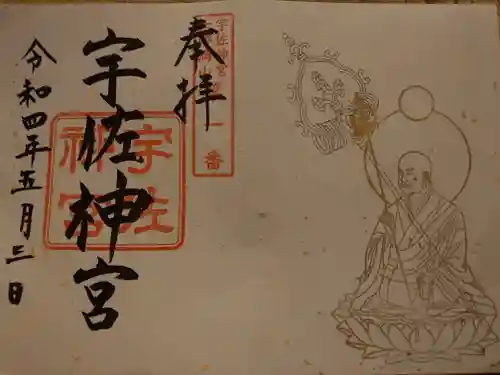 奉拝
宇佐神宮
令和四年五月三日
宇佐
神宮